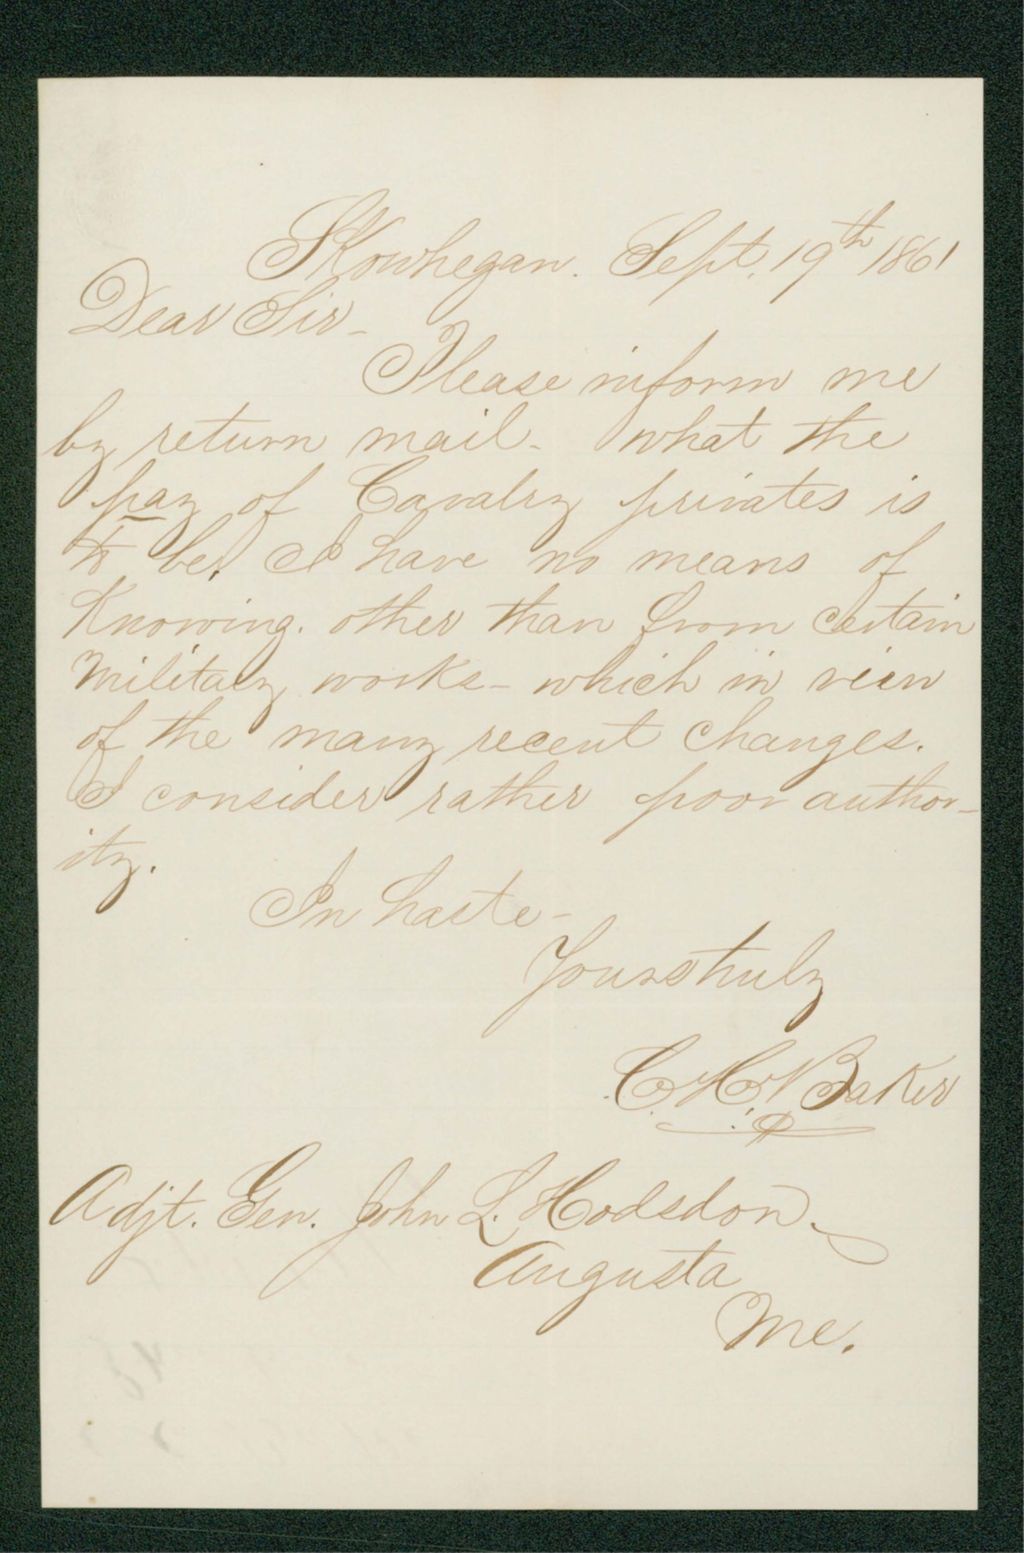 Skowhegan. Sept. 19th 1861
Dear Sir -
Please inform me
by return mail - what the
pay of Cavalry privates is
to be. I have no means of
Knowing. other than from certain
Military works - which in view
of the many recent changes.
I consider rather poor author-
ity.
In haste -
Yours truly
C. H. Baker
Adjt. Gen. John L. Hodsdon.
Augusta
Me.